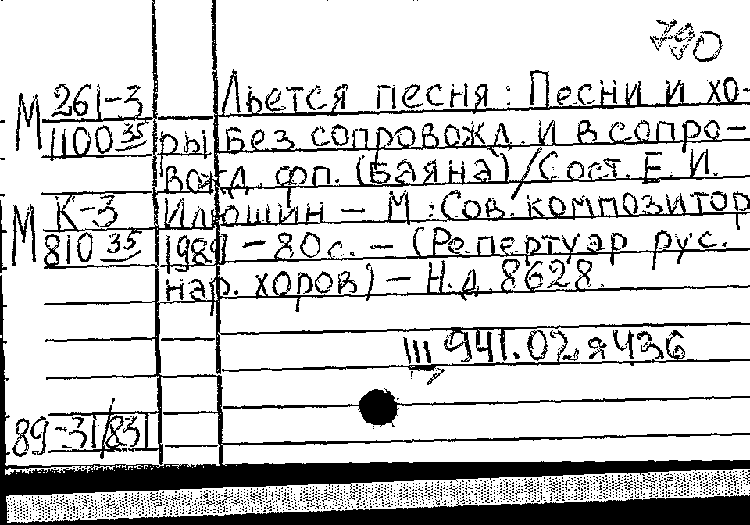 790
М 261-3
1100 35
Льется песня: Песни и хо-
ры без сопровожд. и в сопро-
вожд. фп. (баяна) / Сост. Е. И.
М К-3
810 35
Илюшин - М.: Сов. композитор
1989 - 80 с. - (Репертуар рус.
нар. хоров) - Н.д. 8628.
Ш 941.02 я 436
89-31/831